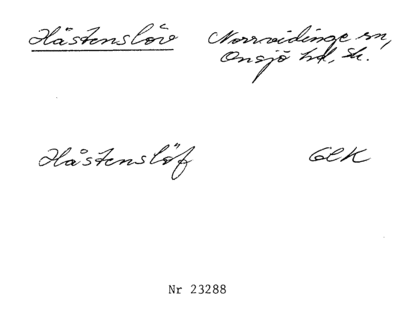 Hästenslöv Norrvidinge sn,
Onsjö hd, Sk.
Håstenslöf GEK
Nr 23288